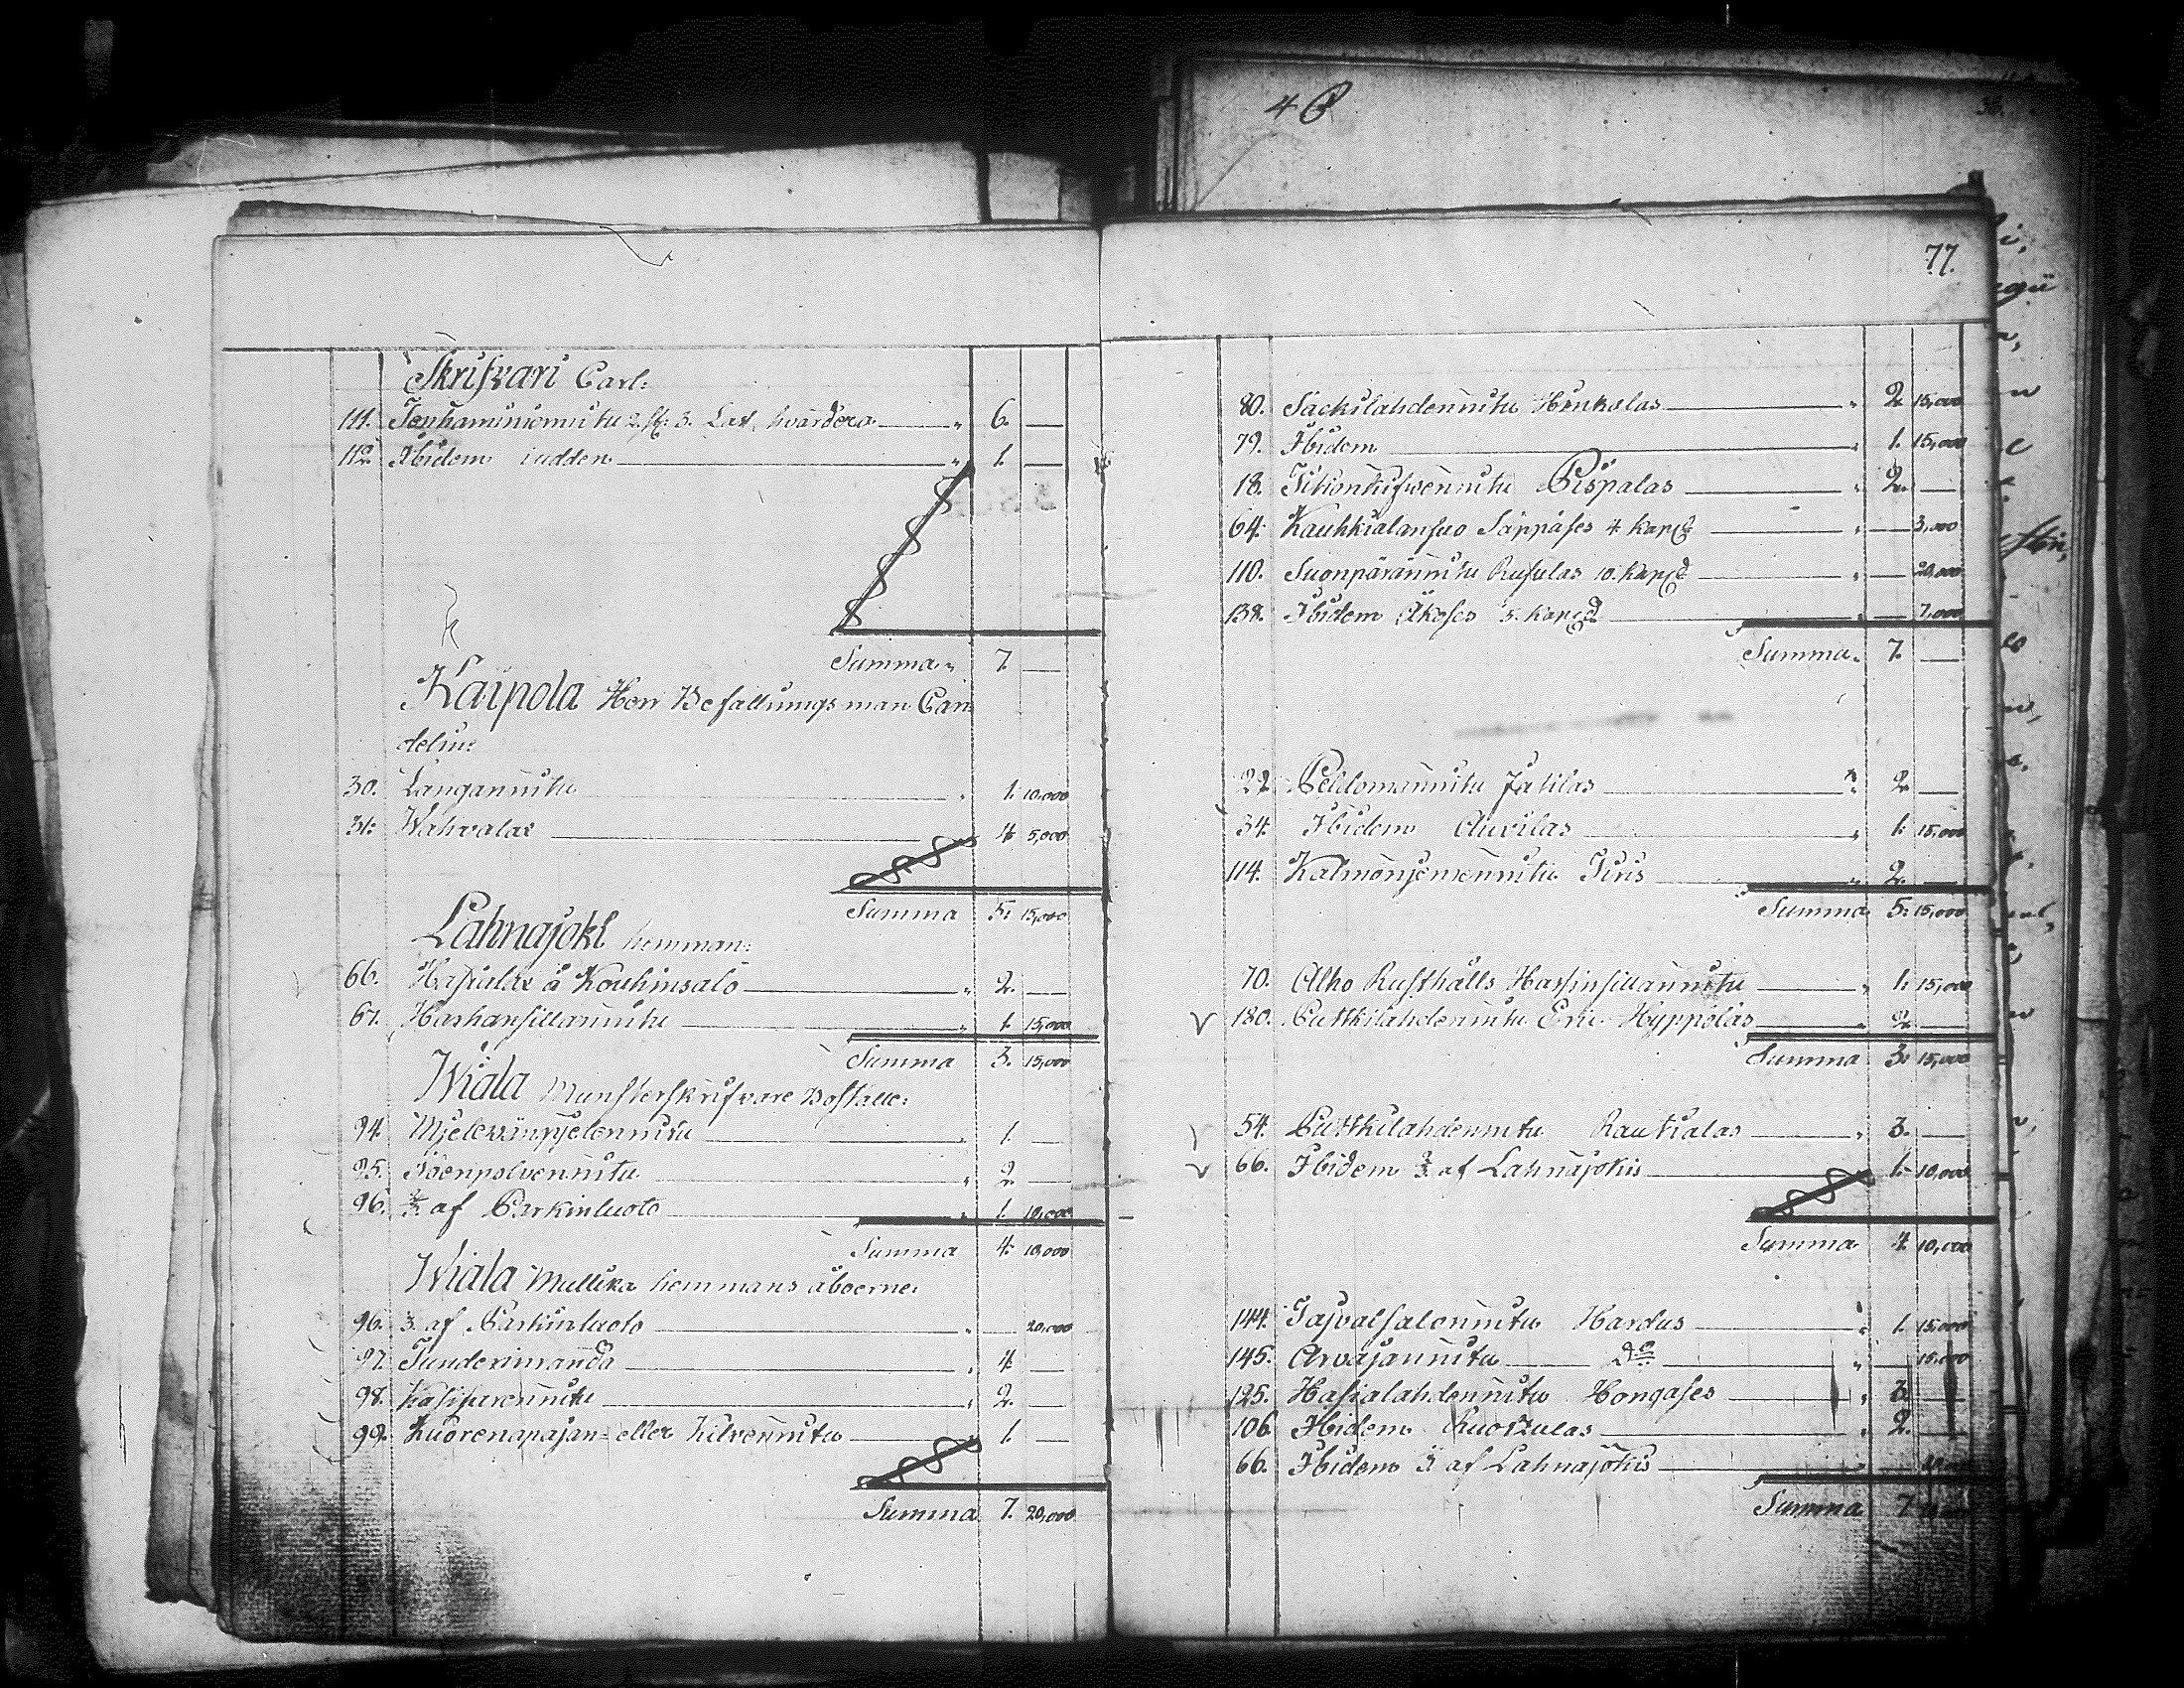 Skrifvari Carl:
111. Tenhaminiemnitu 2. st: 3. Lass hvardera 6. —
112. Ibidem i udden 1. —
Summa 7. —
Kaipola Herr Befallnings man Can
delin:
30. Langannitu 1. 10,000
31. Wahvalax 4 5,000
Summa 5. 15,000
Lahnajoki hemman:
66. Hasialax å Kouhinsalo 2. —
67. Harhansillannitu 1. 15,000
Summa 3. 15,000
Wiala Munsterskrifvare Boställe:
94. 1. —
95. 2. —
96. af Parkinluoto 1. 10,000
Summa 4. 10,000
Wiala Mullika hemmans åboerne:
96. af Parkinluoto — 20,000
97. 4 —
98. 2. —
99. Kuorenapajan- eller Kilvennitu 1. —
Summa 7. 20,000
46
77.
80. Säckilahdennitu Hinkalas 2. 15,000
79. Ibidem 1. 15,000
18. Pispalas 2. —
64. Kauhkialansuo Säppäses 4 kapd — 3,000
110. Suonpärännitu Rusulas 10. Kapd — 20,000
138. Ibidem Äkäses 5. kapd — 7,000
Summa 7. —
22. Peldomannitu Jätilas 2. —
34. Ibidem Auvilas 1. 15,000
114. 2. —
Summa 5. 15,000
70. Alho Rusthålls Harhinsillannitu 1. 15,000
180. Puttkilahdennitu Eric Hyppöläs 2. —
Summa 3. 15,000
54. Puttkilahdennitu Rautialas 3. —
66. Ibidem 2/3 af Lahnajokis 1. 10,000
Summa 4. 10,000
144. Hardus 1. 15,000
145. Arvajannitu Do — 15,000
125. Hasialahdennitu Hongases 3. —
106. Ibidem 2. —
66. Ibidem af Lahnajokis
Summa 7.